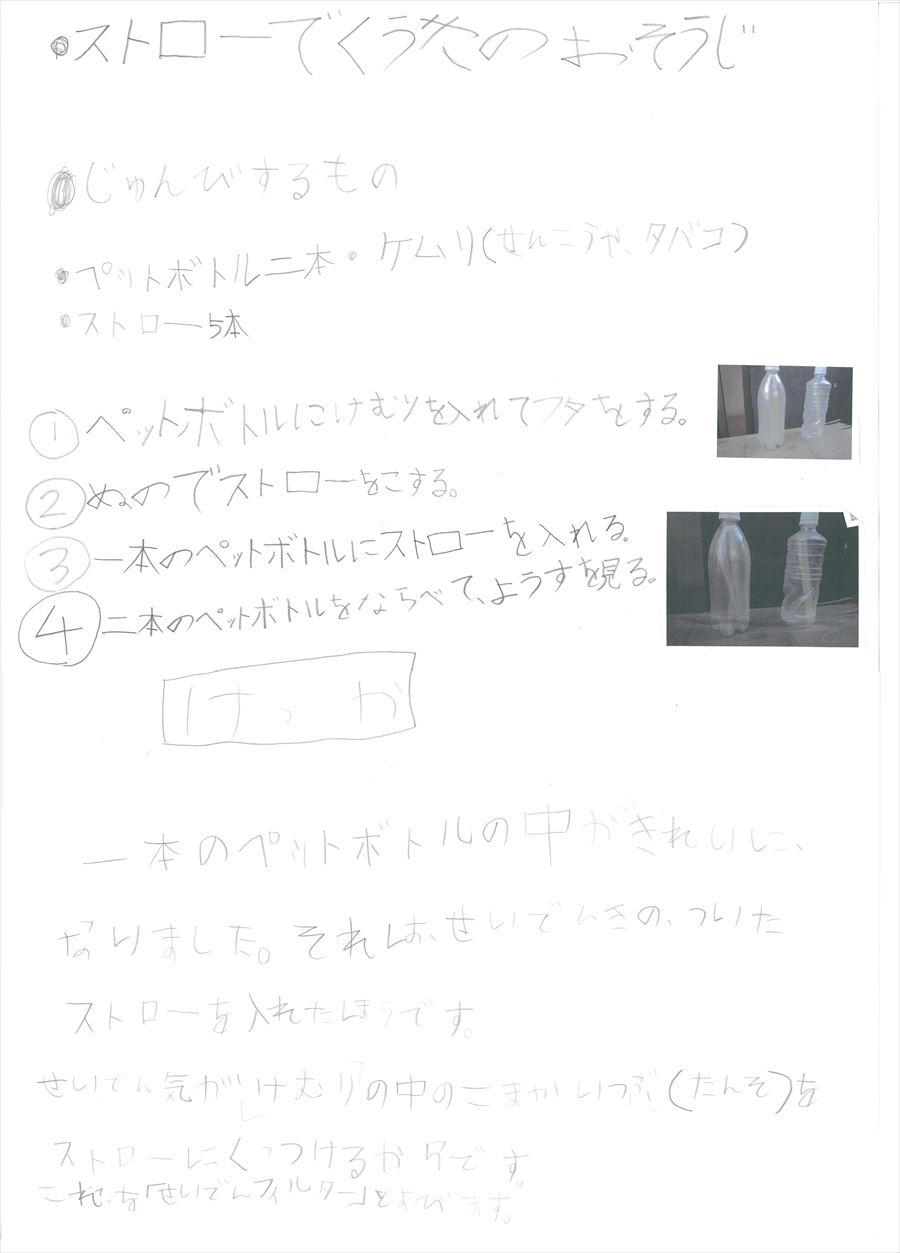 ・ストローでくうきのおそうじ
・じゅんびするもの
・ペットボトル二本・ケムリ(せんこうや、タバコ)
・ストロー5本
①ペットボトルにけむりを入れてフタをとする。
②ぬのでストローをこする。
③一本のペットボトルにストローを入れる。
④二本のペットボトルをならべて、ようすを見る。
けっか
一本のペットボトルの中がきれいに、
なりました。それは、せいでんきの、ついた
ストローを入れたほうです。
せいでん気が「けむり」の中のこまかいつぶ(たんそ)を
ストローにくっつけるからです。
これを「せいでんフィルター」とよびます。